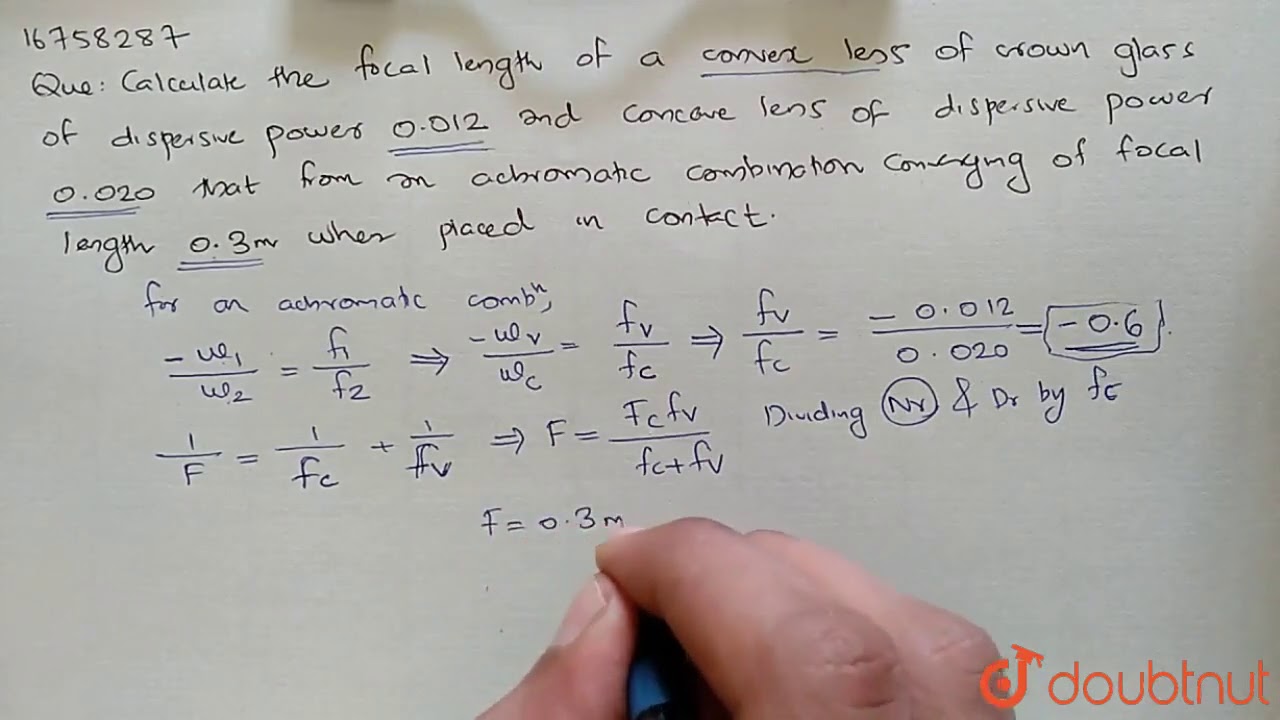 16758287
Que: Calculate the focal length of a convex lens of crown glass
of dispersive power 0.012 and concave lens of dispersive power
0.020 that from an achromatic combination converging of focal
length 0.3m when placed in contact.
for an achromatic combⁿ,
-ω₁/ω₂ = f₁/f₂ ⇒ -ωᵥ/ω_c = fᵥ/f_c ⇒ fᵥ/f_c = -0.012/0.020 = -0.6
1/F = 1/f_c + 1/fᵥ ⇒ F = F_c fᵥ/(f_c+fᵥ) Dividing Nr & Dr by f_c
F = 0.3m
doubtnut